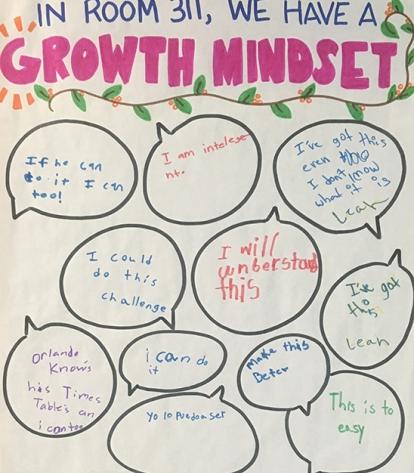 IN ROOM 311, WE HAVE A
GROWTH MINDSET
If he can
do it I can
too!
I am intelege
nt.
I've got this
even
I don't know
what it is
Leah
I could
do this
challenge
I will
unberstand
this
I've got
this
Leah
Orlando
Knows
his Times
Table's an
i can too
i can do
it
make this
Beter
Yo lo puedo aser
This is to
easy